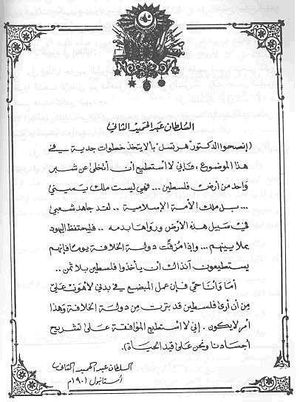 السلطان عبد الحميد الثاني
(إنصحوا الدكتور هرتسل بألا يتخذ خطوات جدية في
هذا الموضوع، فإني لا أستطيع أن أتخلى عن شبر
واحد من أرض فلسطين ... فهي ليست ملك يميني
... بل ملك الأمة الإسلامية .. لقد جاهد شعبي
في سبيل هذه الأرض ورواها بدمه .. فليحتفظ اليهود
بملايينهم ... وإذا مزقت دولة الخلافة يوما فإنهم
يستطيعون آنذاك أن يأخذوا فلسطين بلا ثمن ..
أما وأنا حي فإن عمل المبضع في بدني لأهون علي
من أن أرى فلسطين قد بترت من دولة الخلافة وهذا
أمر لا يكون . إني لا أستطيع الموافقة على تشريح
أجسادنا ونحن على قيد الحياة).
السلطان عبد الحميد الثاني
استانبول ١٩٠١م